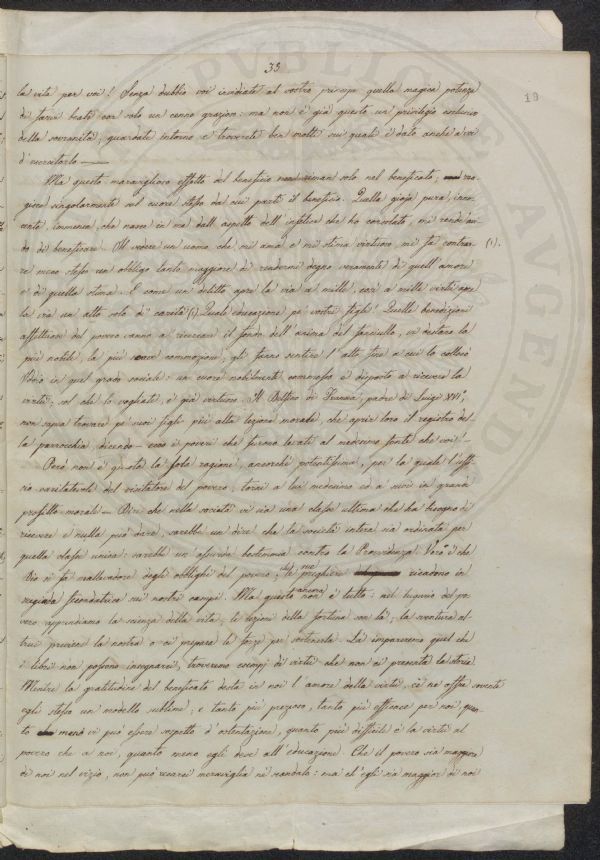 35
19
la vita per voi! Senza dubbio voi invidiate al vostro principe quella magica potenza
di farvi beati con solo un cenno grazioso: ma non è già questo un privilegio esclusivo
della sovranità; guardate intorno e troverete ben molti sui quali è dato anche a voi
d'esercitarlo —
Ma questo maraviglioso effetto del beneficio non riman solo nel beneficato; rea-
gisce singolarmente sul cuore stesso da cui partì il beneficio. Quella gioja pura, inno-
cente, immensa, che nasce in me dall'aspetto dell'infelice che ho consolato, mi rende avi-
do di beneficare. Il vedere un uomo che mi ama e mi stima virtuoso, mi fa contrar- (1).
re meco stesso un obbligo tanto maggiore di rendermi degno veramente di quell'amore
e di quella stima. E come un delitto apre la via a mille, così a mille virtù apre
la via un atto solo di carità (1) Quale educazione pe' vostri figli! Quelle benedizioni
affettuose del povero vanno a ricercare il fondo dell'anima del fanciullo, vi destano la
più nobile, la più commozione, gli fanno sentire l'alto fine a cui lo collocò
Iddio in quel grado sociale: un cuore nobilmente commosso è disposto a ricevere la
virtù: sol che lo vogliate, è già virtuoso. Il Delfino di Francia, padre di Luigi XVI°,
non sapea trovare pe' suoi figli più alta lezione morale, che aprir loro il registro del-
la parrocchia, dicendo — ecco i poveri che furono lavati al medesimo fonte che voi! —
Però non è questa la sola ragione, ancorchè potentissima, per la quale l'uffi-
cio caritatevole del visitatore del povero, torni a lui medesimo ed a' suoi in grande
profitto morale — Dire che nella società vi sia una classe ultima che ha bisogno di
ricevere e nulla può dare, sarebbe un dire che la società intera sia ordinata per
quella classe unica: sarebbe un assurda bestemmia contro la Provvidenza! Vero è che
Dio si fa mallevadore degli obblighi del povero, e le sue preghiere ricadono in
rugiada fecondatrice sui nostri campi. Ma questo non è ancora tutto: nel tugurio del po-
vero apprendiamo la scienza della vita; le lezioni della fortuna son là; la sventura al-
trui previene la nostra o ci prepara le forze per sostenerla. Là impareremo quel che
i libri non possono insegnarci, troveremo esempj di virtù che non ci presenta la storia.
Mentre la gratitudine del beneficato desta in noi l'amore della virtù, ce ne offre sovente
egli stesso un modello sublime; e tanto più prezioso, tanto più efficace per noi, quan-
to meno vi può essere sospetto d'ostentazione, quanto più difficile è la virtù al
povero che a noi, quanto meno egli deve all'educazione. Che il povero sia maggiore
di noi nel vizio, non può recarci meraviglia nè scandalo: ma ch'egli sia maggior di noi
PVBLICÆ
AVGENDÆ